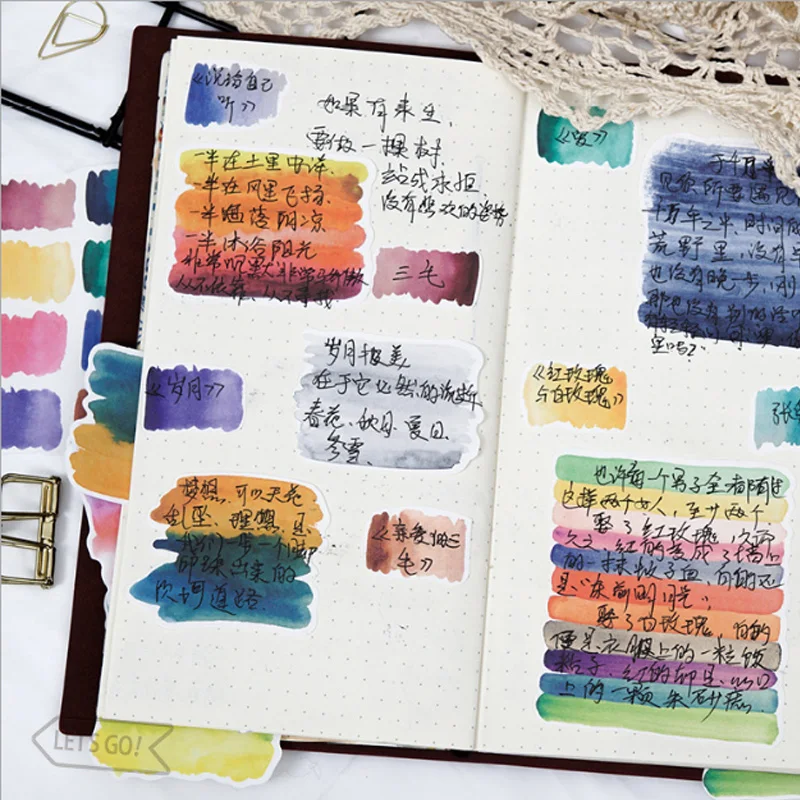 《说给自己
听》
如果有来生
要做一棵树
站成永恒
没有悲欢的姿势
一半在土里安详
一半在风里飞扬
一半洒落阴凉
一半沐浴阳光
非常沉默非常骄傲
从不依靠、从不寻找
三毛
《岁月》
岁月极美
在于它必然的流逝
春花、秋月、夏日、
冬雪。
梦想,可以天花
乱坠,理想,是
我们一步一个脚
印踩出来的
坎坷道路
《亲爱的三
毛》
《爱》
于千万
见你所要遇见
千万年之中,时间的
荒野里,没有早
也没有晚一步,刚
那也没有别的话
里吗?
《红玫瑰
与白玫瑰》
张
也许每一个男子全都有过
这样两个女人,至少两个
娶了红玫瑰,久而
久之,红的变成了墙上
的一抹蚊子血,白的还
是"床前明月光";
娶了白玫瑰,白的
便是衣服上的一粒饭
粘子,红的却是心口
上的一颗朱砂痣
LET'S GO!